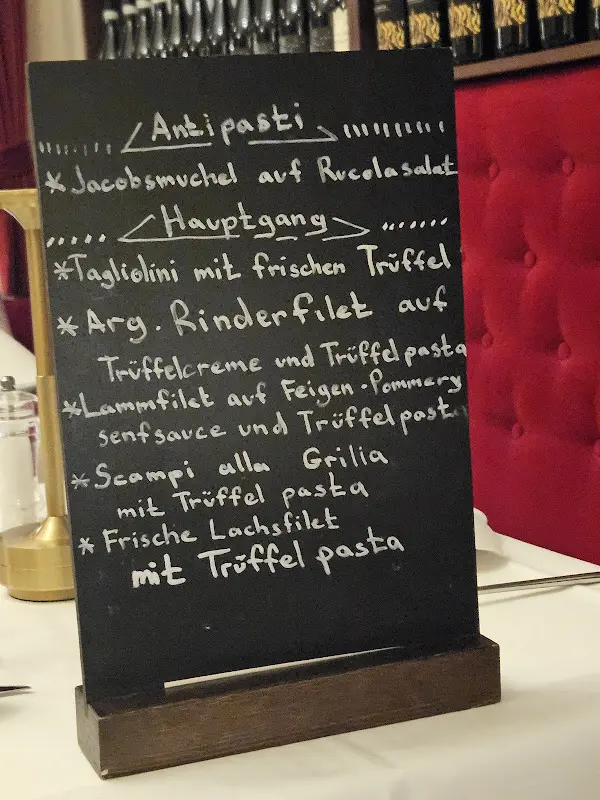 Antipasti
* Jacobsmuchel auf Rucolasalat
Hauptgang
* Tagliolini mit frischen Trüffel
* Arg. Rinderfilet auf
Trüffelcreme und Trüffelpasta
* Lammfilet auf Feigen-Pommery
senfsauce und Trüffelpasta
* Scampi alla Grilia
mit Trüffel pasta
* Frische Lachsfilet
mit Trüffel pasta